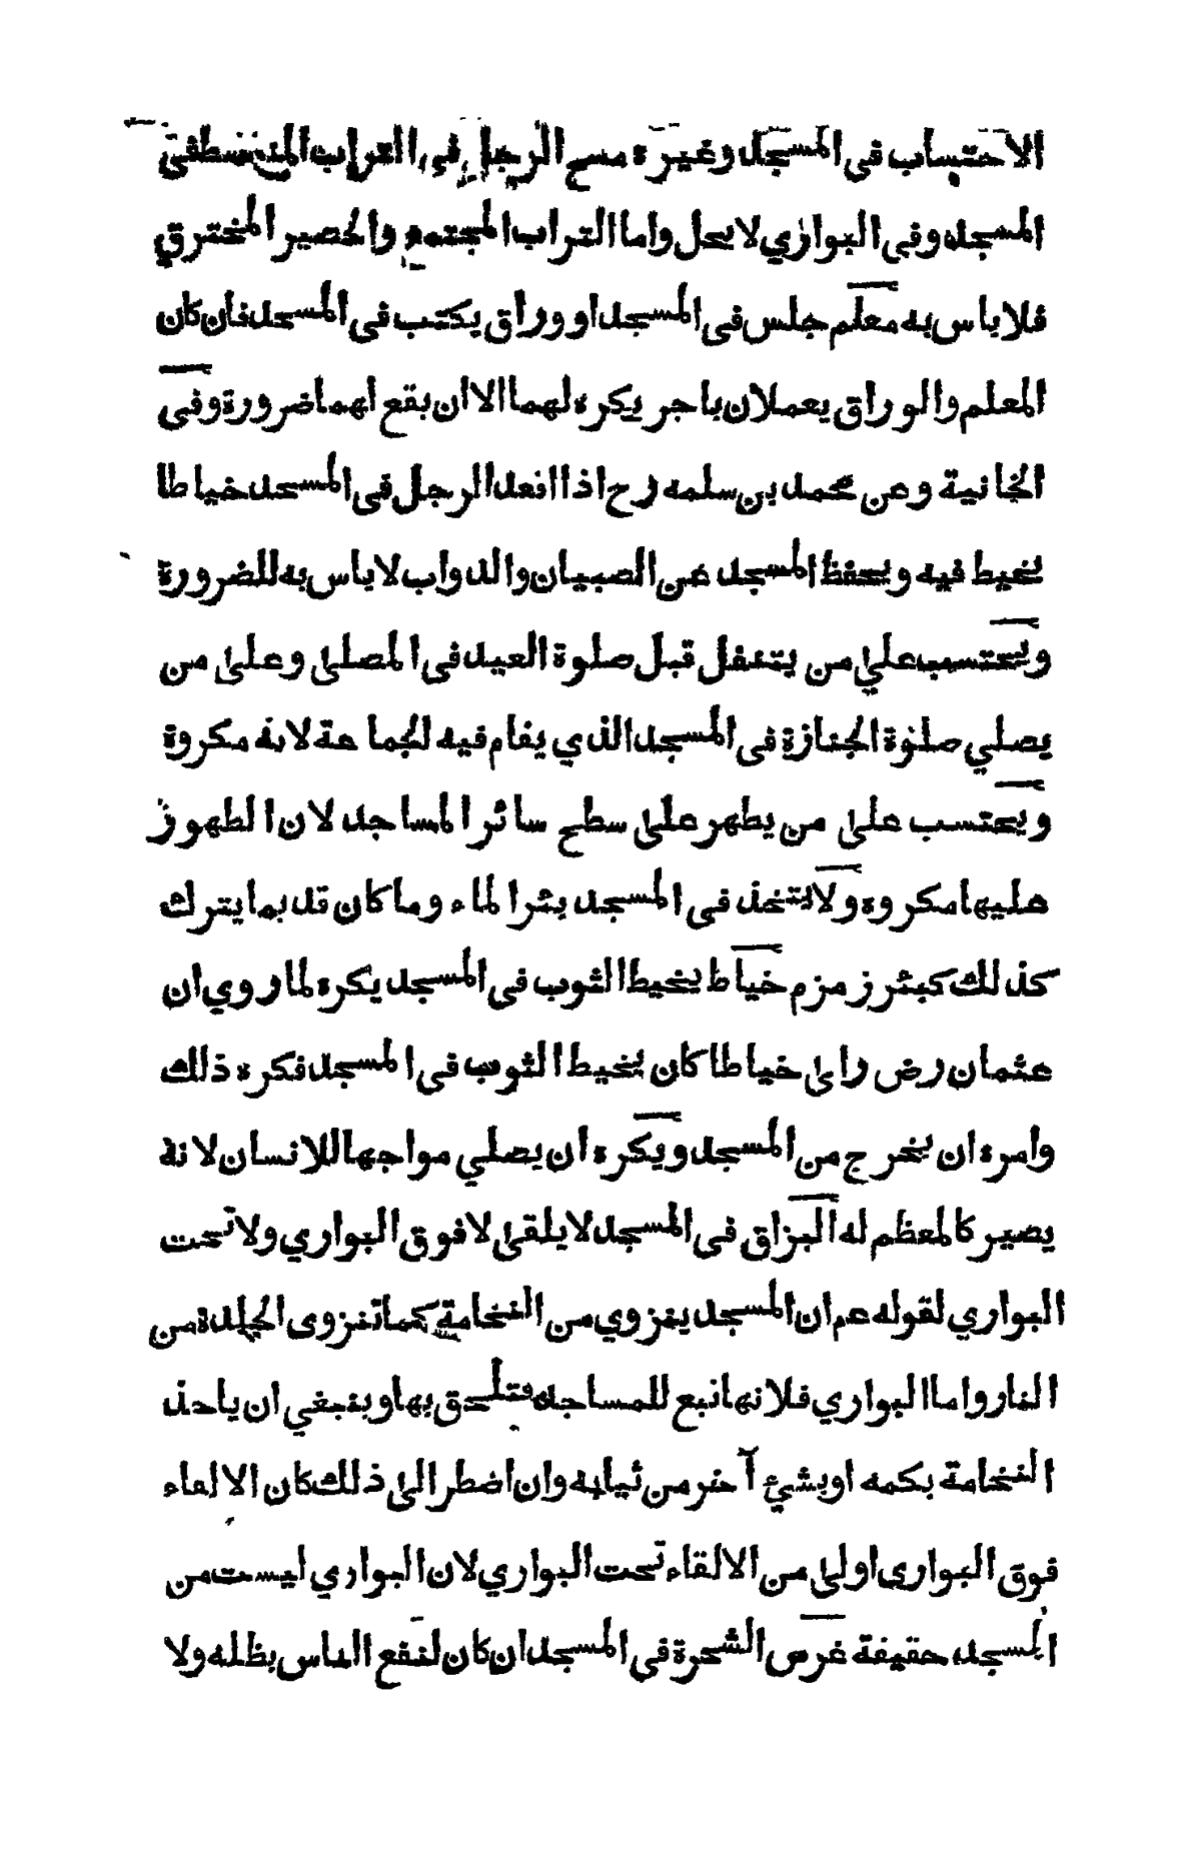 الاحتساب في المسجد وغيره مسح الرجل في التراب المنبسط في
المسجد وفي البواري لا يحل واما التراب المجتمع والحصير المخترق
فلا باس به معلم جلس في المسجد او وراق يكتب في المسجد فان كان
المعلم والوراق يعملان باجر يكره لهما الا ان يقع لهما ضرورة وفي
الخانية وعن محمد بن سلمه رح اذا اقعد الرجل في المسجد خياطا
يخيط فيه ويحفظ المسجد عن الصبيان والدواب لا باس به للضرورة
ويحتسب على من يتنفل قبل صلوة العيد في المصلى وعلى من
يصلي صلوة الجنازة في المسجد الذي يقام فيه الجماعة لانه مكروة
ويحتسب على من يطهر على سطح سائر المساجد لان الطهور
عليها مكروه ولا يتخذ في المسجد بئر الماء وما كان قديما يترك
كذلك كبئر زمزم خياط يخيط الثوب في المسجد يكره لما روي ان
عثمان رض راى خياطا كان يخيط الثوب في المسجد فكره ذلك
وامره ان يخرج من المسجد ويكره ان يصلي مواجها للانسان لانه
يصير كالمعظم له البزاق في المسجد لا يلقى لا فوق البواري ولا تحت
البواري لقوله عم ان المسجد ينزوي من النخامة كما تنزوى الجلدة من
النار واما البواري فلانها تبع للمساجد فتلحق بها وينبغي ان ياخذ
النخامة بكمه او بشيء آخر من ثيابه وان اضطر الى ذلك كان الالقاء
فوق البواري اولى من الالقاء تحت البواري لان البواري ليست من
المسجد حقيقة غرس الشجرة في المسجد ان كان لنفع الناس بظله ولا